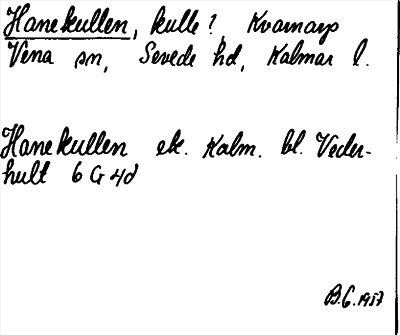 Hanekullen, kulle? Kvarnarp
Vena sn, Sevede hd, Kalmar l.
Hanekullen ek. Kalm. bl. Veder-
hult 6 G 4d
B.G. 1957